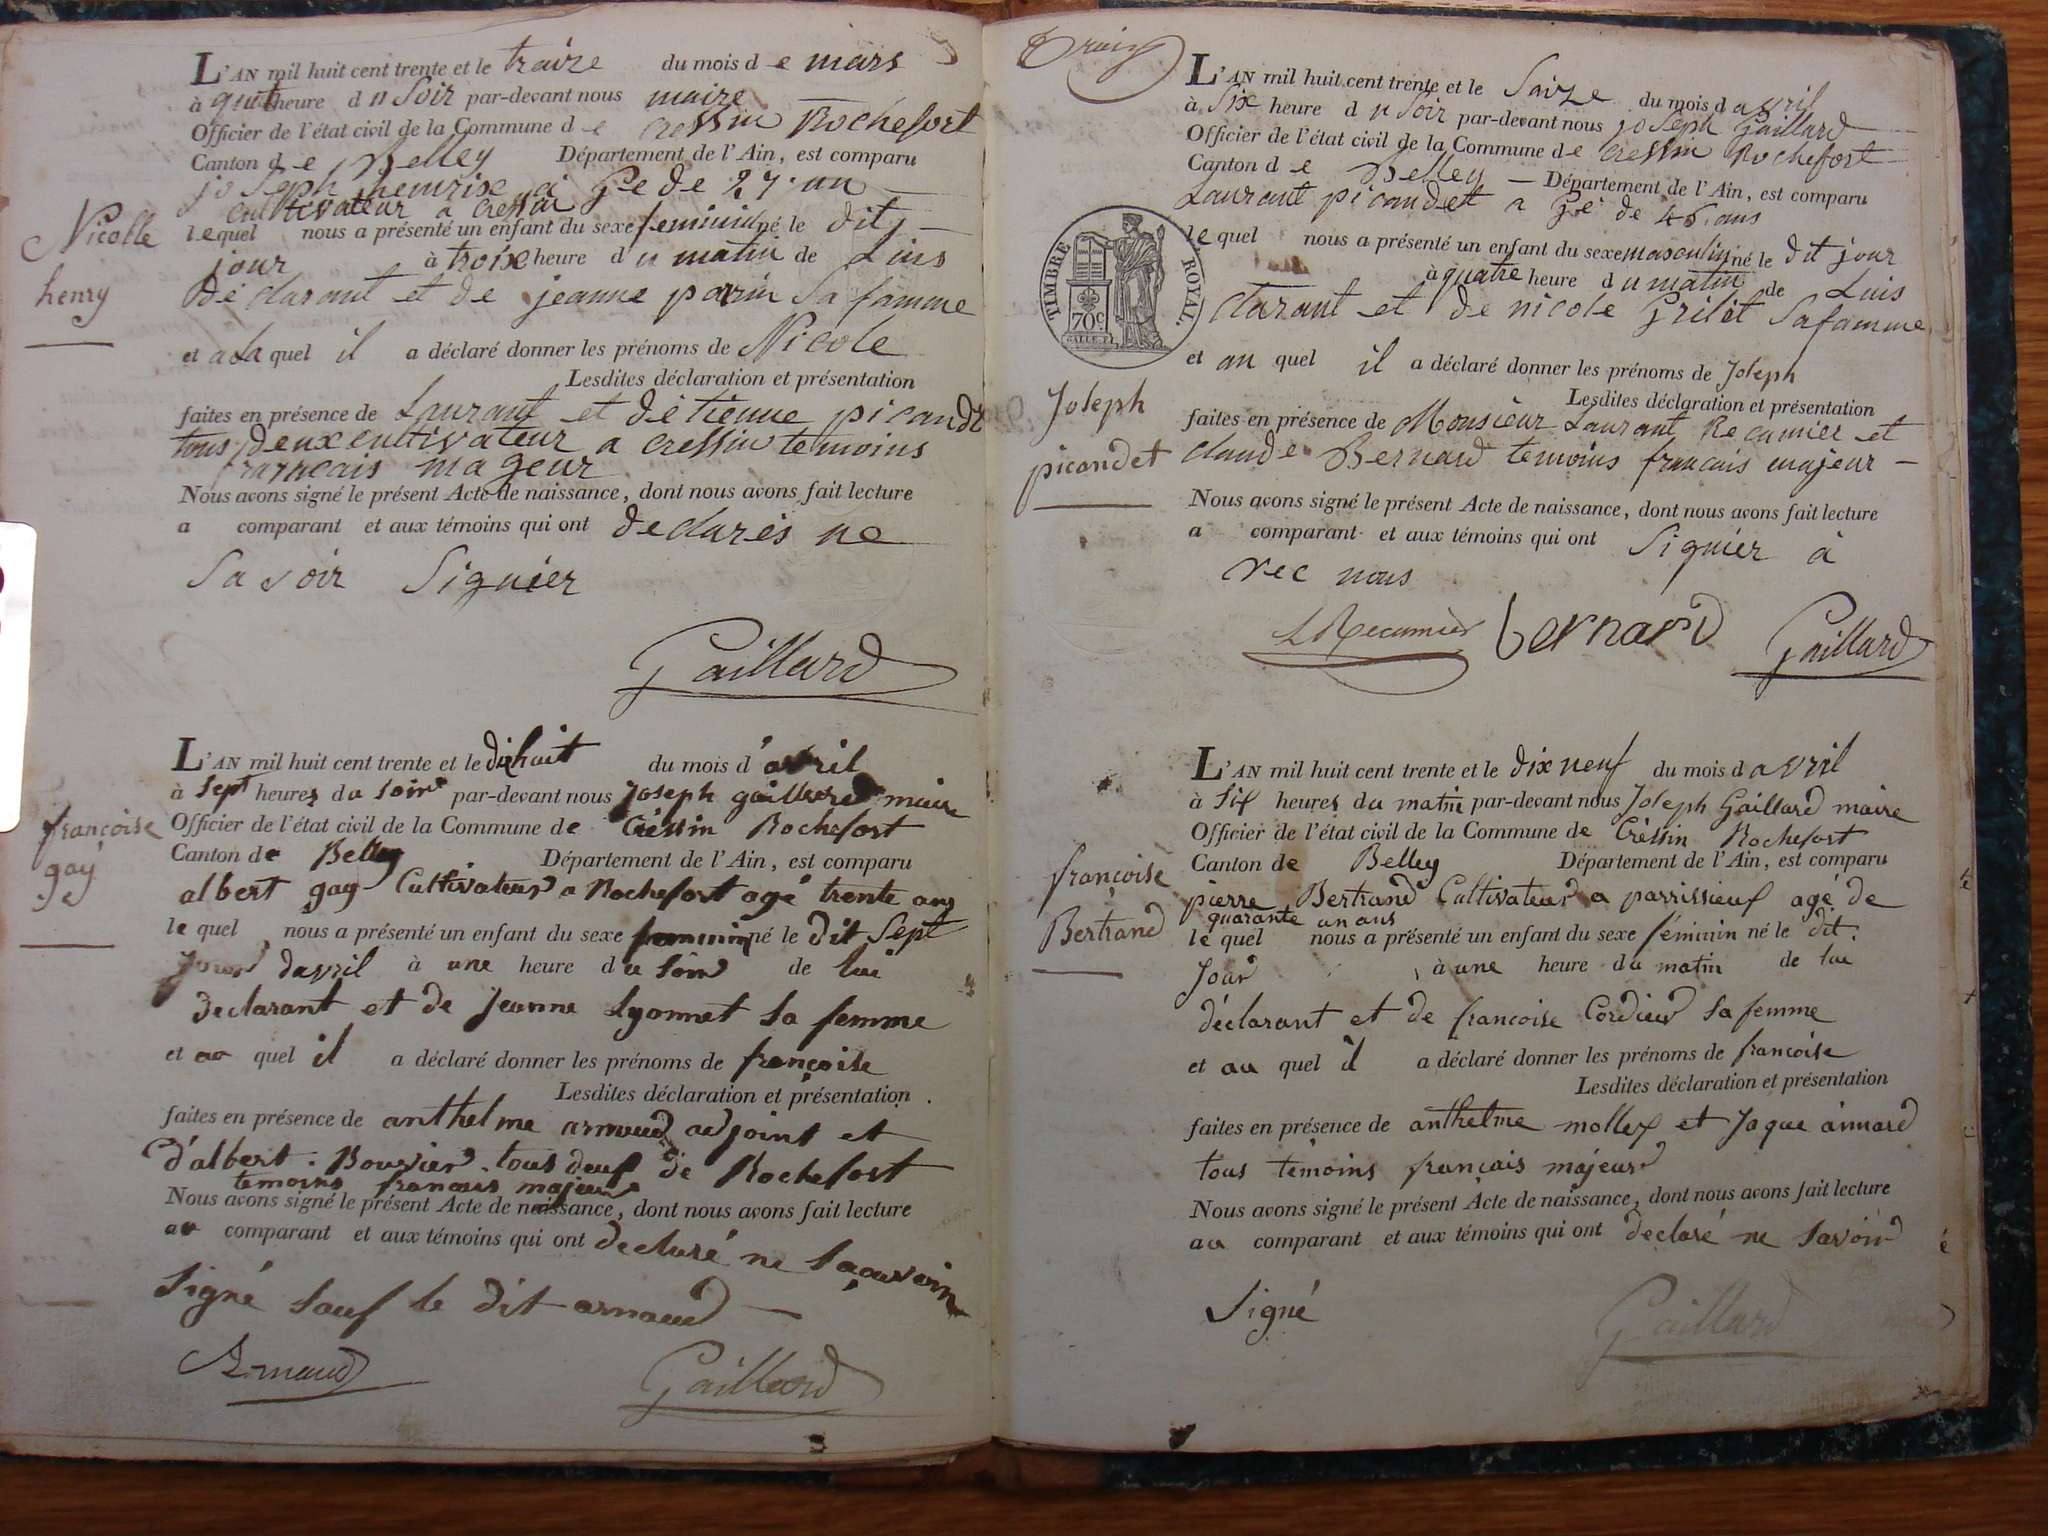 L'AN mil huit cent trente et le traize du mois de mars
à heure du Soir par-devant nous maire
Officier de l'état civil de la Commune de cressin Rochefort
Canton de Belley Département de l'Ain, est comparu
joseph henrise a Ge de 27 an
cultivateur a cressin
Nicolle
henry
lequel nous a présenté un enfant du sexe feminin né le dit
jour à troixe heure du matin de Luis
déclarant et de jeanne parin Sa famme
et a La quel il a déclaré donner les prénoms de Nicole
Lesdites déclaration et présentation
faites en présence de Laurant et détienne picandet
tous deux cultivateur a cressin temoins
francais mageur
Nous avons signé le présent Acte de naissance, dont nous avons fait lecture
a comparant et aux témoins qui ont declarés ne
Savoir Signier
Gaillard
L'AN mil huit cent trente et le dixhuit du mois d'avril
à Sept heures du Soir par-devant nous Joseph gaillard maire
Officier de l'état civil de la Commune de Créssin Rochefort
Canton de Belley Département de l'Ain, est comparu
françoise
gay
albert gay Cultivateur a Rochefort agé trente ans
le quel nous a présenté un enfant du sexe feminin né le dit Sept
Jour davril à une heure du Soir de lui
declarant et de Jeanne Lyonnet Sa femme
et au quel il a déclaré donner les prénoms de françoise
Lesdites déclaration et présentation.
faites en présence de anthelme arnaud adjoint et
d'albert. Bouvier. tous deux de Rochefort
temoins francais majeurs
Nous avons signé le présent Acte de naissance, dont nous avons fait lecture
au comparant et aux témoins qui ont declaré ne Saçavoir
Signé Sauf le dit arnaud
Arnaud Gaillard
L'AN mil huit cent trente et le Saize du mois d avril
à Six heure du Soir par-devant nous joseph Gaillard
Officier de l'état civil de la Commune de cressin Rochefort
Canton de Belley Département de l'Ain, est comparu
Laurant picandet a Gé de 46 ans
TIMBRE ROYAL.
70c
le quel nous a présenté un enfant du sexe masculin né le dit jour
à quatre heure du matin de Luis
clarant et de nicole Grilét Sa famme
et au quel il a déclaré donner les prénoms de Joseph
Lesdites déclaration et présentation
Joseph
picandet
faites en présence de Monsieur Laurant Recamier et
claude Bernard temoins francais majeur
Nous avons signé le présent Acte de naissance, dont nous avons fait lecture
a comparant et aux témoins qui ont Signier à
vec nous
L Recamier bernard Gaillard
L'AN mil huit cent trente et le dix neuf du mois d avril
à Six heures du matin par-devant nous Joseph Gaillard maire
Officier de l'état civil de la Commune de Créssin Rochefort
Canton de Belley Département de l'Ain, est comparu
françoise
Bertrand
pierre Bertrand Cultivateur a parrissieux agé de
quarante un ans
le quel nous a présenté un enfant du sexe féminin né le dit.
Jour à une heure du matin de lui
déclarant et de françoise Cordier Sa femme
et au quel il a déclaré donner les prénoms de françoise
Lesdites déclaration et présentation
faites en présence de anthelme mollex et Jaque
tous témoins français majeur
Nous avons signé le présent Acte de naissance, dont nous avons fait lecture
au comparant et aux témoins qui ont declaré ne Savoir
Signé
Gaillard